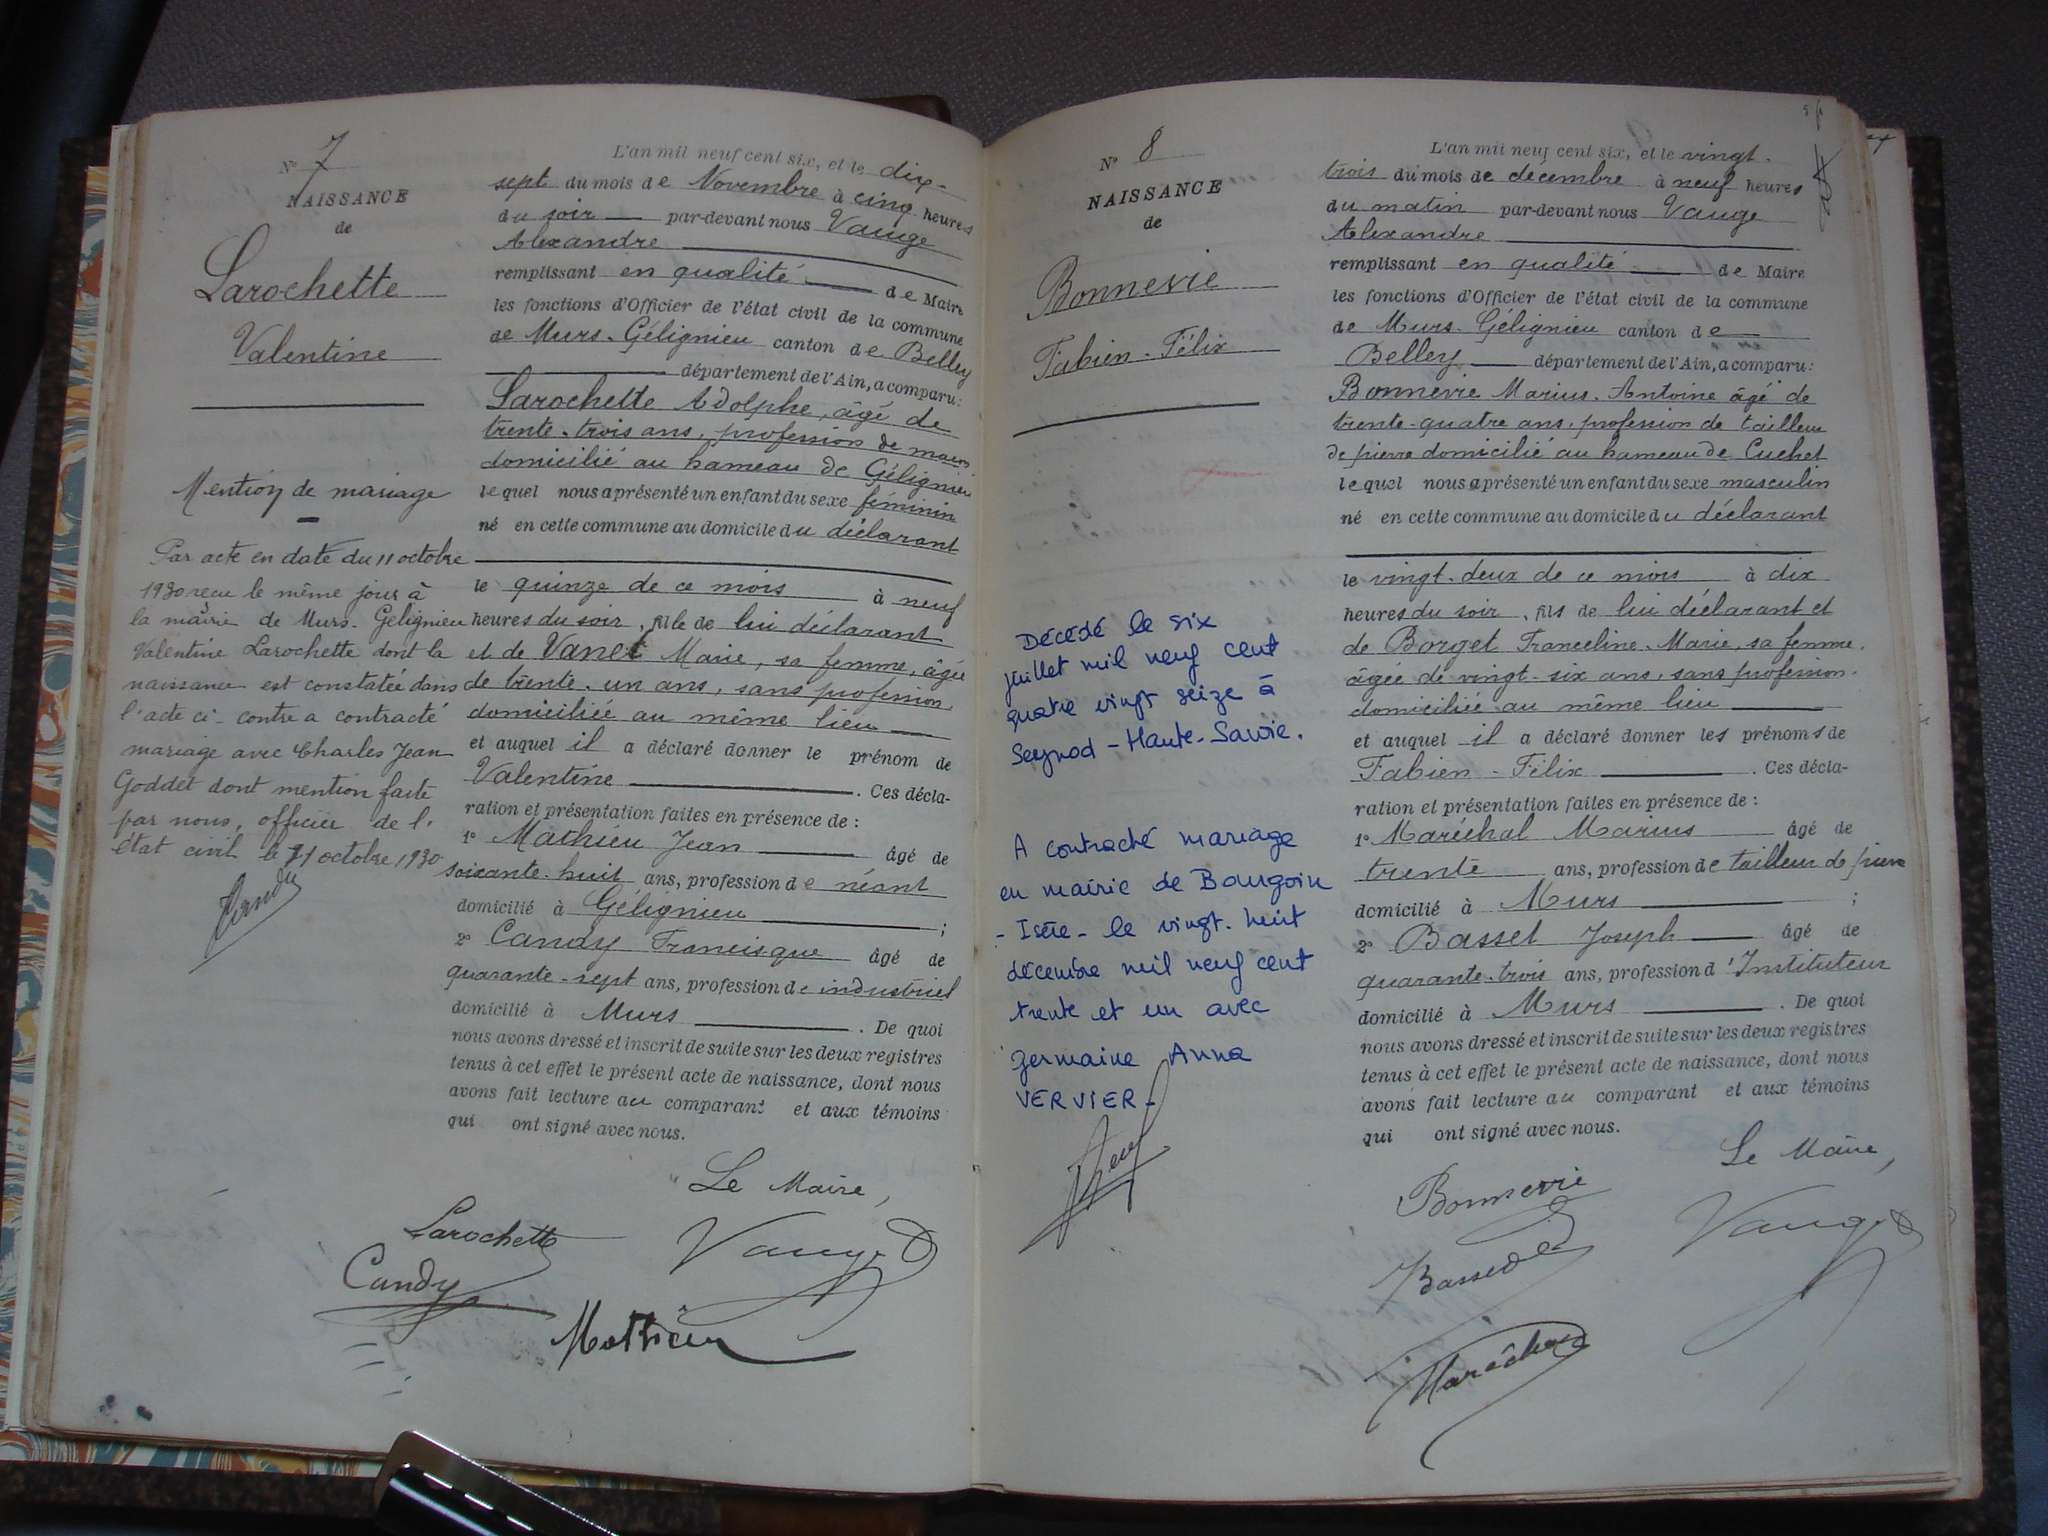 N° 7
NAISSANCE
de
Larochette
Valentine
Mention de mariage
Par acte en date du 11 octobre
1930 reçu le même jour à
la mairie de Murs-Gélignieu
Valentine Larochette dont la
naissance est constatée dans
l'acte ci-contre a contracté
mariage avec Charles Jean
Goddet dont mention faite
par nous, officier de l'
état civil le 11 octobre 1930
L'an mil neuf cent six, et le dix-
sept du mois de Novembre à cinq heures
du soir par-devant nous Vauge
Alexandre
remplissant en qualité de Maire
les fonctions d'Officier de l'état civil de la commune
de Murs-Gélignieu canton de Belley
département de l'Ain, a comparu:
Larochette Adolphe, âgé de
trente-trois ans, profession de maçon
domicilié au hameau de Gélignieu
lequel nous a présenté un enfant du sexe féminin
né en cette commune au domicile du déclarant
le quinze de ce mois à neuf
heures du soir, fille de lui déclarant
et de Vanel Marie, sa femme, âgée
de trente-un ans, sans profession,
domiciliée au même lieu
et auquel il a déclaré donner le prénom de
Valentine . Ces décla-
ration et présentation faites en présence de :
1° Mathieu Jean âgé de
soixante-huit ans, profession de néant
domicilié à Gélignieu ;
2° Candy Francisque âgé de
quarante-sept ans, profession de industriel
domicilié à Murs . De quoi
nous avons dressé et inscrit de suite sur les deux registres
tenus à cet effet le présent acte de naissance, dont nous
avons fait lecture au comparant et aux témoins
qui ont signé avec nous.
Le Maire,
Larochette Vauge
Candy
Mathieu
N° 8
NAISSANCE
de
Bonnevie
Fabien-Félix
Décédé le six
juillet mil neuf cent
quatre vingt seize à
Seynod - Haute-Savoie.
A contracté mariage
en mairie de Bourgoin
- Isère - le vingt-huit
décembre mil neuf cent
trente et un avec
Germaine Anna
VERVIER -
L'an mil neuf cent six, et le vingt-
trois du mois de décembre à neuf heures
du matin par-devant nous Vauge
Alexandre
remplissant en qualité de Maire
les fonctions d'Officier de l'état civil de la commune
de Murs-Gélignieu canton de
Belley département de l'Ain, a comparu:
Bonnevie Marius-Antoine âgé de
trente-quatre ans, profession de tailleur
de pierre domicilié au hameau de Cuchet
lequel nous a présenté un enfant du sexe masculin
né en cette commune au domicile du déclarant
le vingt-deux de ce mois à dix
heures du soir, fils de lui déclarant et
de Borget Franceline-Marie, sa femme,
âgée de vingt-six ans, sans profession,
domiciliée au même lieu
et auquel il a déclaré donner les prénoms de
Fabien-Félix . Ces décla-
ration et présentation faites en présence de :
1° Maréchal Marius âgé de
trente ans, profession de tailleur de pierre
domicilié à Murs ;
2° Basset Joseph âgé de
quarante-trois ans, profession d'Instituteur
domicilié à Murs . De quoi
nous avons dressé et inscrit de suite sur les deux registres
tenus à cet effet le présent acte de naissance, dont nous
avons fait lecture au comparant et aux témoins
qui ont signé avec nous.
Le Maire,
Bonnevie
Vauge
Basset
Maréchal